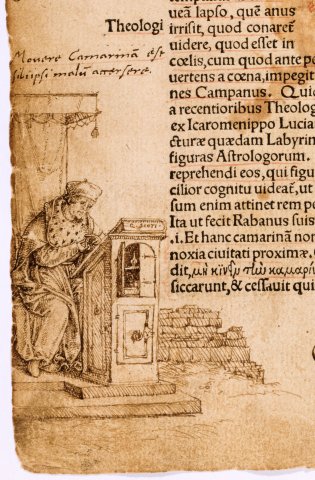 Theologi
Movere Camarinā est
sibi ipsi malū accersere.
ueā lapso, quē anus
irrisit, quod conaret
uidere, quod esset in
cœlis, cum quod ante pe
uertens a cœna, impegit
nes Campanus. Quid
a recentioribus Theolog
ex Icaromenippo Lucia
cturæ quædam Labyrin
figuras Astrologorum.
reprehendi eos, qui figu
cilior cognitu uideat̃, ut
sum enim attinet rem p
Ita ut fecit Rabanus suis
.i. Et hanc camarinā non
noxia ciuitati proximæ.
dit, μὴ κίνῃν τὼν καμαρή
siccarunt, & cessauit qui